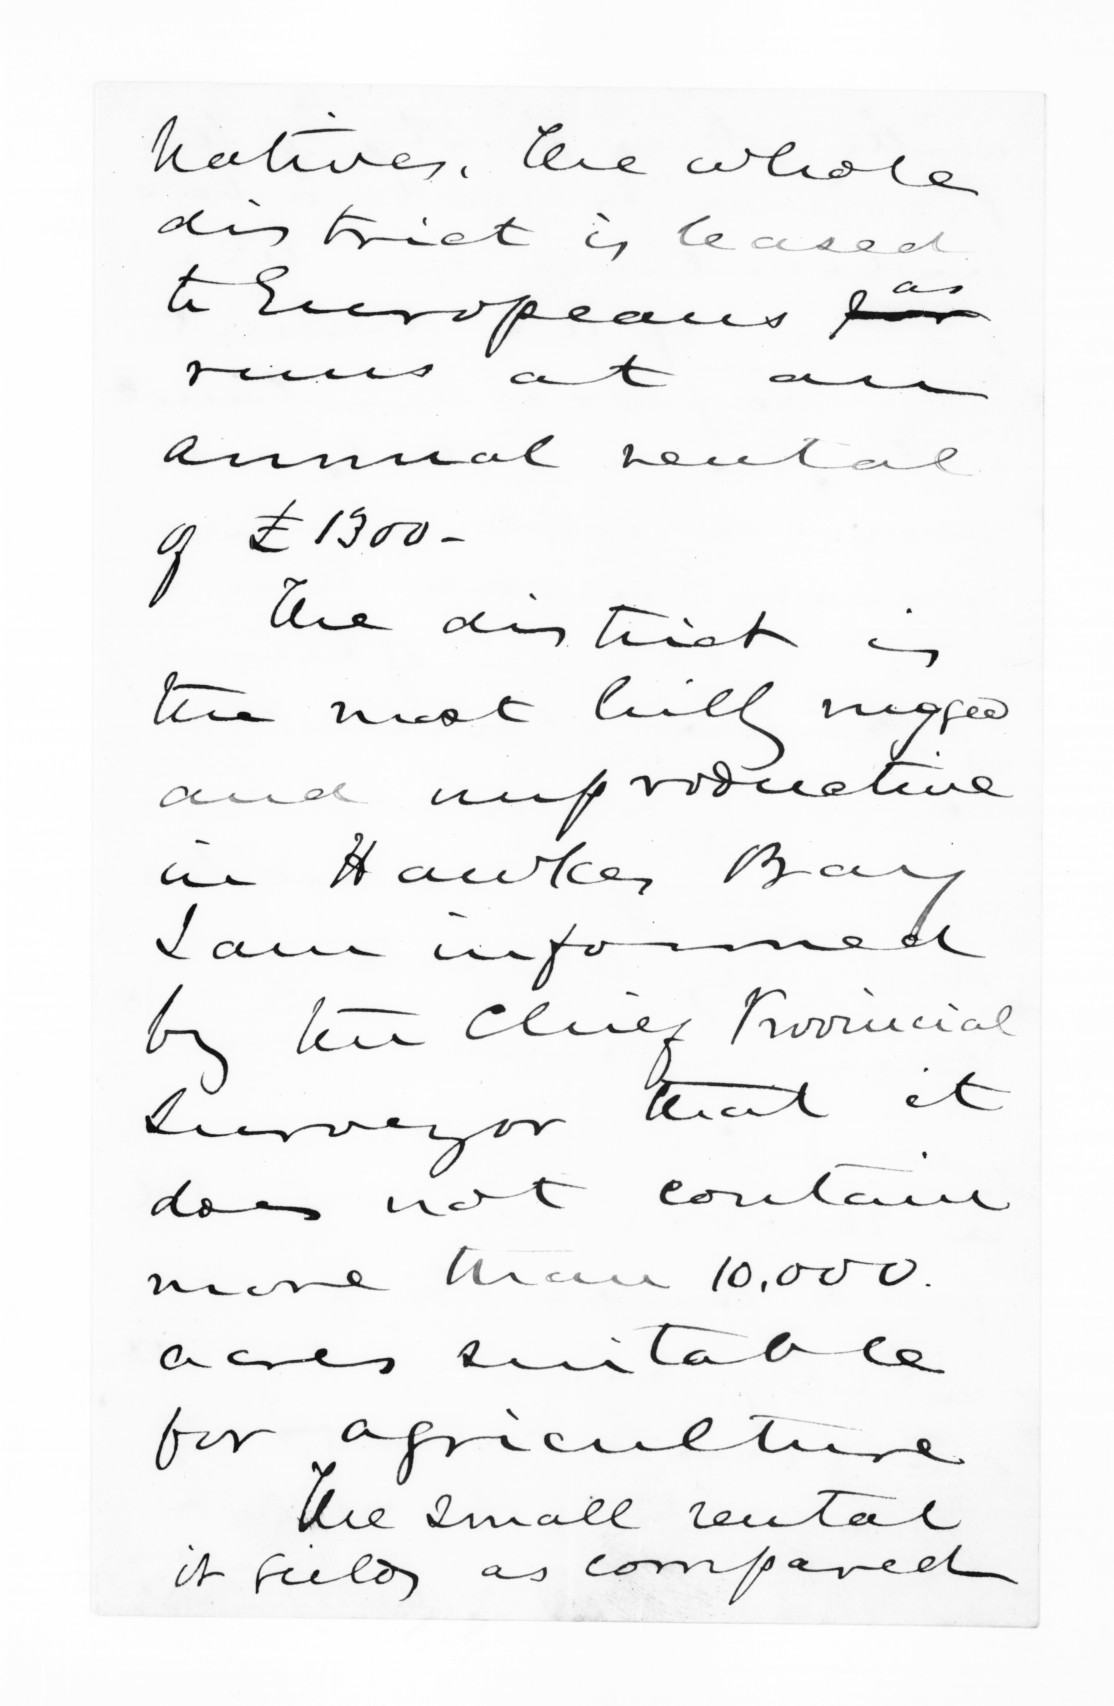 Natives. The whole
district is leased
to Europeans as
runs at an
annual rental
of £1300-
The district is
the most hilly rugged
and unproductive
in Hawkes Bay
I am informed
by the Chief Provincial
Surveyor that it
does not contain
more than 10,000.
acres suitable
for agriculture
The small rental
it yields as compared